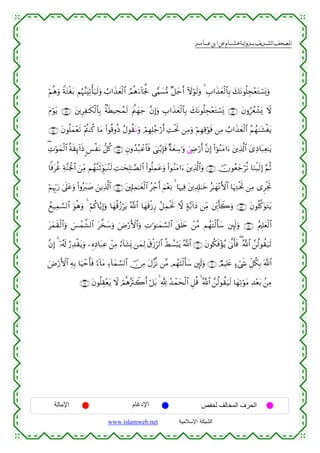 المصحف الشريف برواية هشام عن ابن عامر
وَيَسْتَعْجِلُونَكَ بِٱلْعَذَابِ وَلَوْلَآ أَجَلٌ مُّسَمًّى لَّجَآءَهُمُ ٱلْعَذَابُ وَلَيَأْتِيَنَّهُم بَغْتَةً وَهُمْ
لَا يَشْعُرُونَ ۝ يَسْتَعْجِلُونَكَ بِٱلْعَذَابِ وَإِنَّ جَهَنَّمَ لَمُحِيطَةٌۢ بِٱلْكَٰفِرِينَ ۝ يَوْمَ
نَغْشَىٰهُمُ ٱلْعَذَابُ مِن فَوْقِهِمْ وَمِن تَحْتِ أَرْجُلِهِمْ وَنَقُولُ ذُوقُوا۟ مَا كُنتُمْ تَعْمَلُونَ ۝
يَٰعِبَادِىَ ٱلَّذِينَ ءَامَنُوٓا۟ إِنَّ أَرْضِىَ وَٰسِعَةٌ فَإِيَّٰىَ فَٱعْبُدُونِ ۝ كُلُّ نَفْسٍ ذَآئِقَةُ ٱلْمَوْتِ
ثُمَّ إِلَيْنَا تُرْجَعُونَ ۝ وَٱلَّذِينَ ءَامَنُوا۟ وَعَمِلُوا۟ ٱلصَّٰلِحَٰتِ لَنُبَوِّئَنَّهُم مِّنَ ٱلْجَنَّةِ غُرَفًا
تَجْرِى مِن تَحْتِهَا ٱلْأَنْهَٰرُ خَٰلِدِينَ فِيهَا نِعْمَ أَجْرُ ٱلْعَٰمِلِينَ ۝ ٱلَّذِينَ صَبَرُوا۟ وَعَلَىٰ رَبِّهِمْ
يَتَوَكَّلُونَ ۝ وَكَأَيِّن مِّن دَآبَّةٍ لَّا تَحْمِلُ رِزْقَهَا ٱللَّهُ يَرْزُقُهَا وَإِيَّاكُمْ وَهُوَ ٱلسَّمِيعُ
ٱلْعَلِيمُ ۝ وَلَئِن سَأَلْتَهُم مَّنْ خَلَقَ ٱلسَّمَٰوَٰتِ وَٱلْأَرْضَ وَسَخَّرَ ٱلشَّمْسَ وَٱلْقَمَرَ
لَيَقُولُنَّ ٱللَّهُ فَأَنَّىٰ يُؤْفَكُونَ ۝ ٱللَّهُ يَبْسُطُ ٱلرِّزْقَ لِمَن يَشَآءُ مِنْ عِبَادِهِۦ وَيَقْدِرُ لَهُۥٓ إِنَّ
ٱللَّهَ بِكُلِّ شَىْءٍ عَلِيمٌ ۝ وَلَئِن سَأَلْتَهُم مَّن نَّزَّلَ مِنَ ٱلسَّمَآءِ مَآءً فَأَحْيَا بِهِ ٱلْأَرْضَ
مِنۢ بَعْدِ مَوْتِهَا لَيَقُولُنَّ ٱللَّهُ قُلِ ٱلْحَمْدُ لِلَّهِ بَلْ أَكْثَرُهُمْ لَا يَعْقِلُونَ ۝
الحرف المخالف لحفص الإدغام الإمالة
الشبكة الإسلامية www.islamweb.net